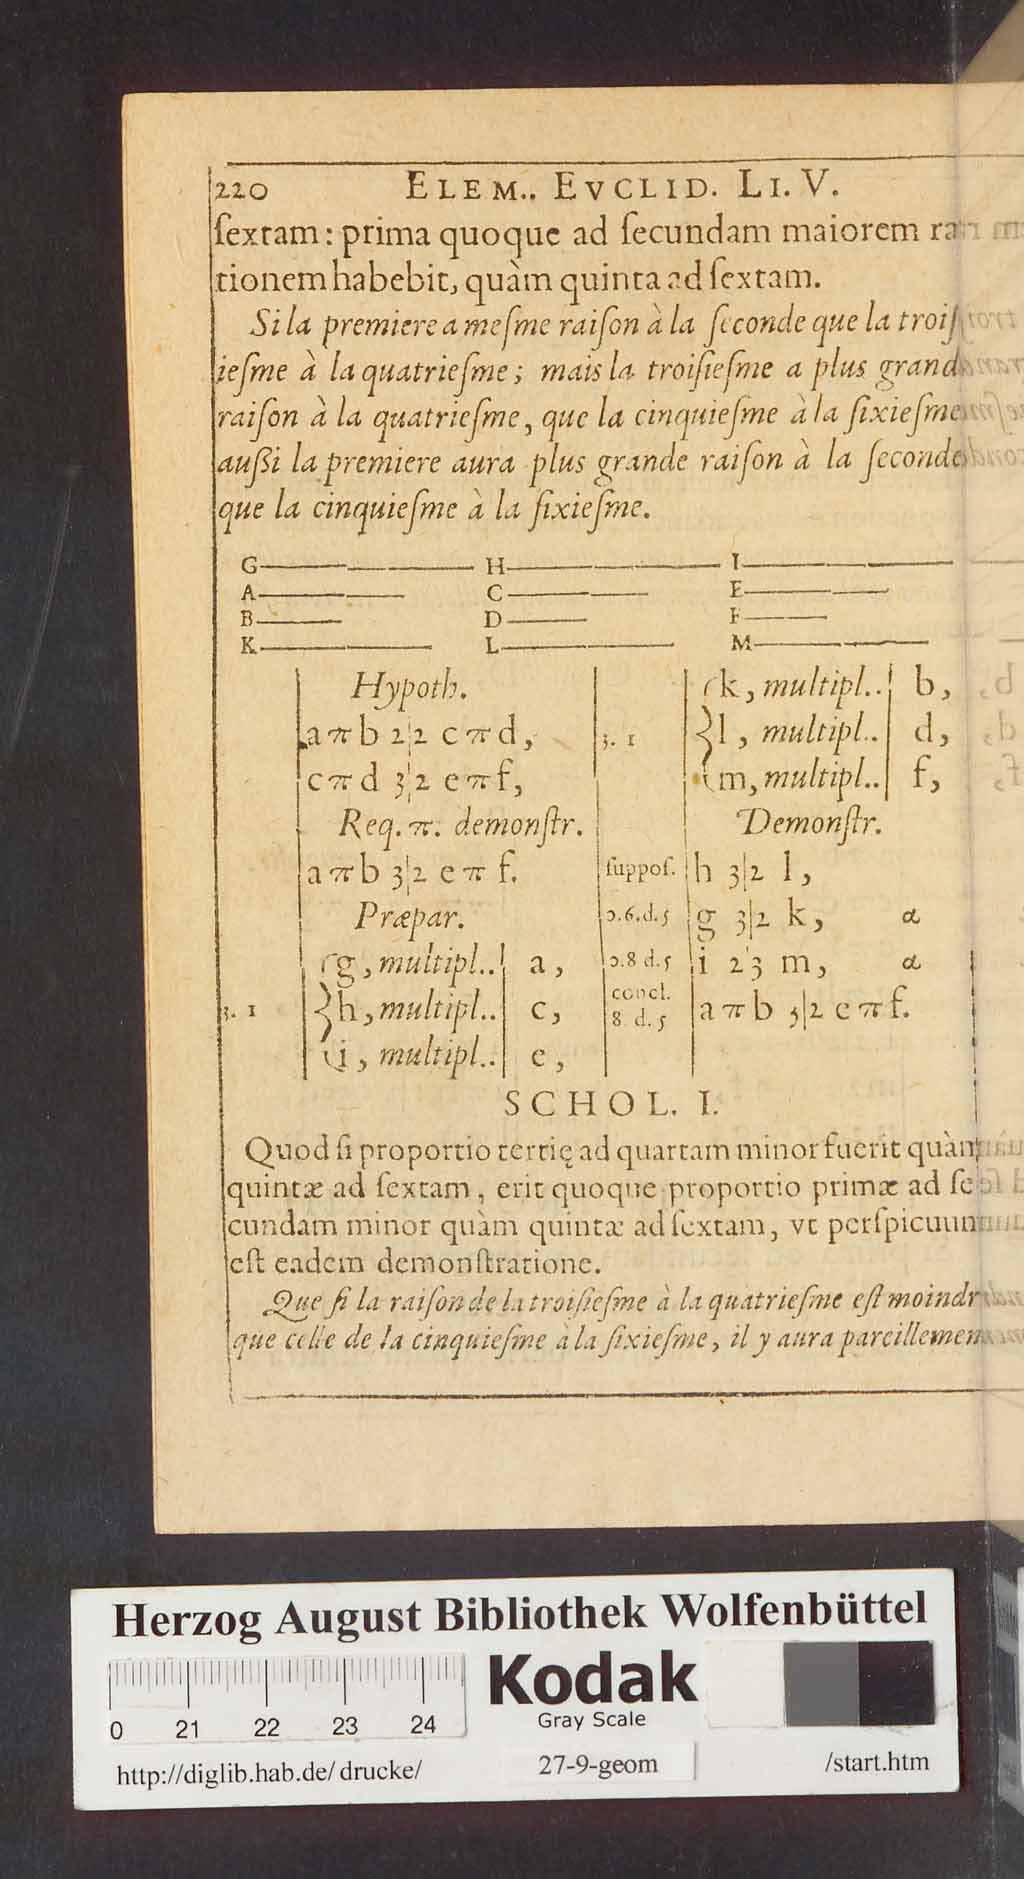 220 ELEM.. EVCLID. LI. V.
ſextam: prima quoque ad ſecundam maiorem ra-
tionem habebit, quàm quinta ad ſextam.
Si la premiere a meſme raiſon à la ſeconde que la troiſ
ieſme à la quatrieſme; mais la troiſieſme a plus grande
raiſon à la quatrieſme, que la cinquieſme à la ſixieſme
auſſi la premiere aura plus grande raiſon à la ſeconde
que la cinquieſme à la ſixieſme.
G H I
A C E
B D F
K L M
Hypoth.
aπb 2|2 cπd,
cπd 3|2 eπf,
Req. π. demonſtr.
aπb 3|2 eπ f.
Præpar.
g, multipl.. a,
3. 1 h, multipl.. c,
i, multipl.. e,
k, multipl.. b,
3. 1 l, multipl.. d,
m, multipl.. f,
Demonſtr.
ſuppoſ. h 3|2 l,
6.d.5 g 3|2 k, α
8 d.5 i 2|3 m, α
concl.
8 d. 5 aπb 3|2 eπf.
SCHOL. I.
Quod ſi proportio tertię ad quartam minor fuerit quàm
quintæ ad ſextam, erit quoque proportio primæ ad ſe
cundam minor quàm quintæ ad ſextam, vt perſpicuum
eſt eadem demonſtratione.
Que ſi la raiſon de la troiſieſme à la quatrieſme eſt moindr
que celle de la cinquieſme à la ſixieſme, il y aura pareillemen
Herzog August Bibliothek Wolfenbüttel
Kodak
Gray Scale
0 21 22 23 24
http://diglib.hab.de/drucke/ 27-9-geom /start.htm